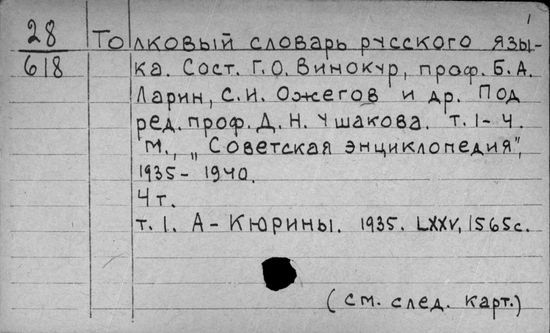 1
28
618
Толковый словарь русского язы-
ка. Сост. Г.О. Винокур, проф. Б.А.
Ларин, С.И. Ожегов и др. Под
ред. проф. Д.Н. Ушакова. т. 1-4.
М., „Советская энциклопедия",
1935- 1940.
4 т.
т. 1. А - Кюрины. 1935. LXXV, 1565с.
(см. след. карт.)